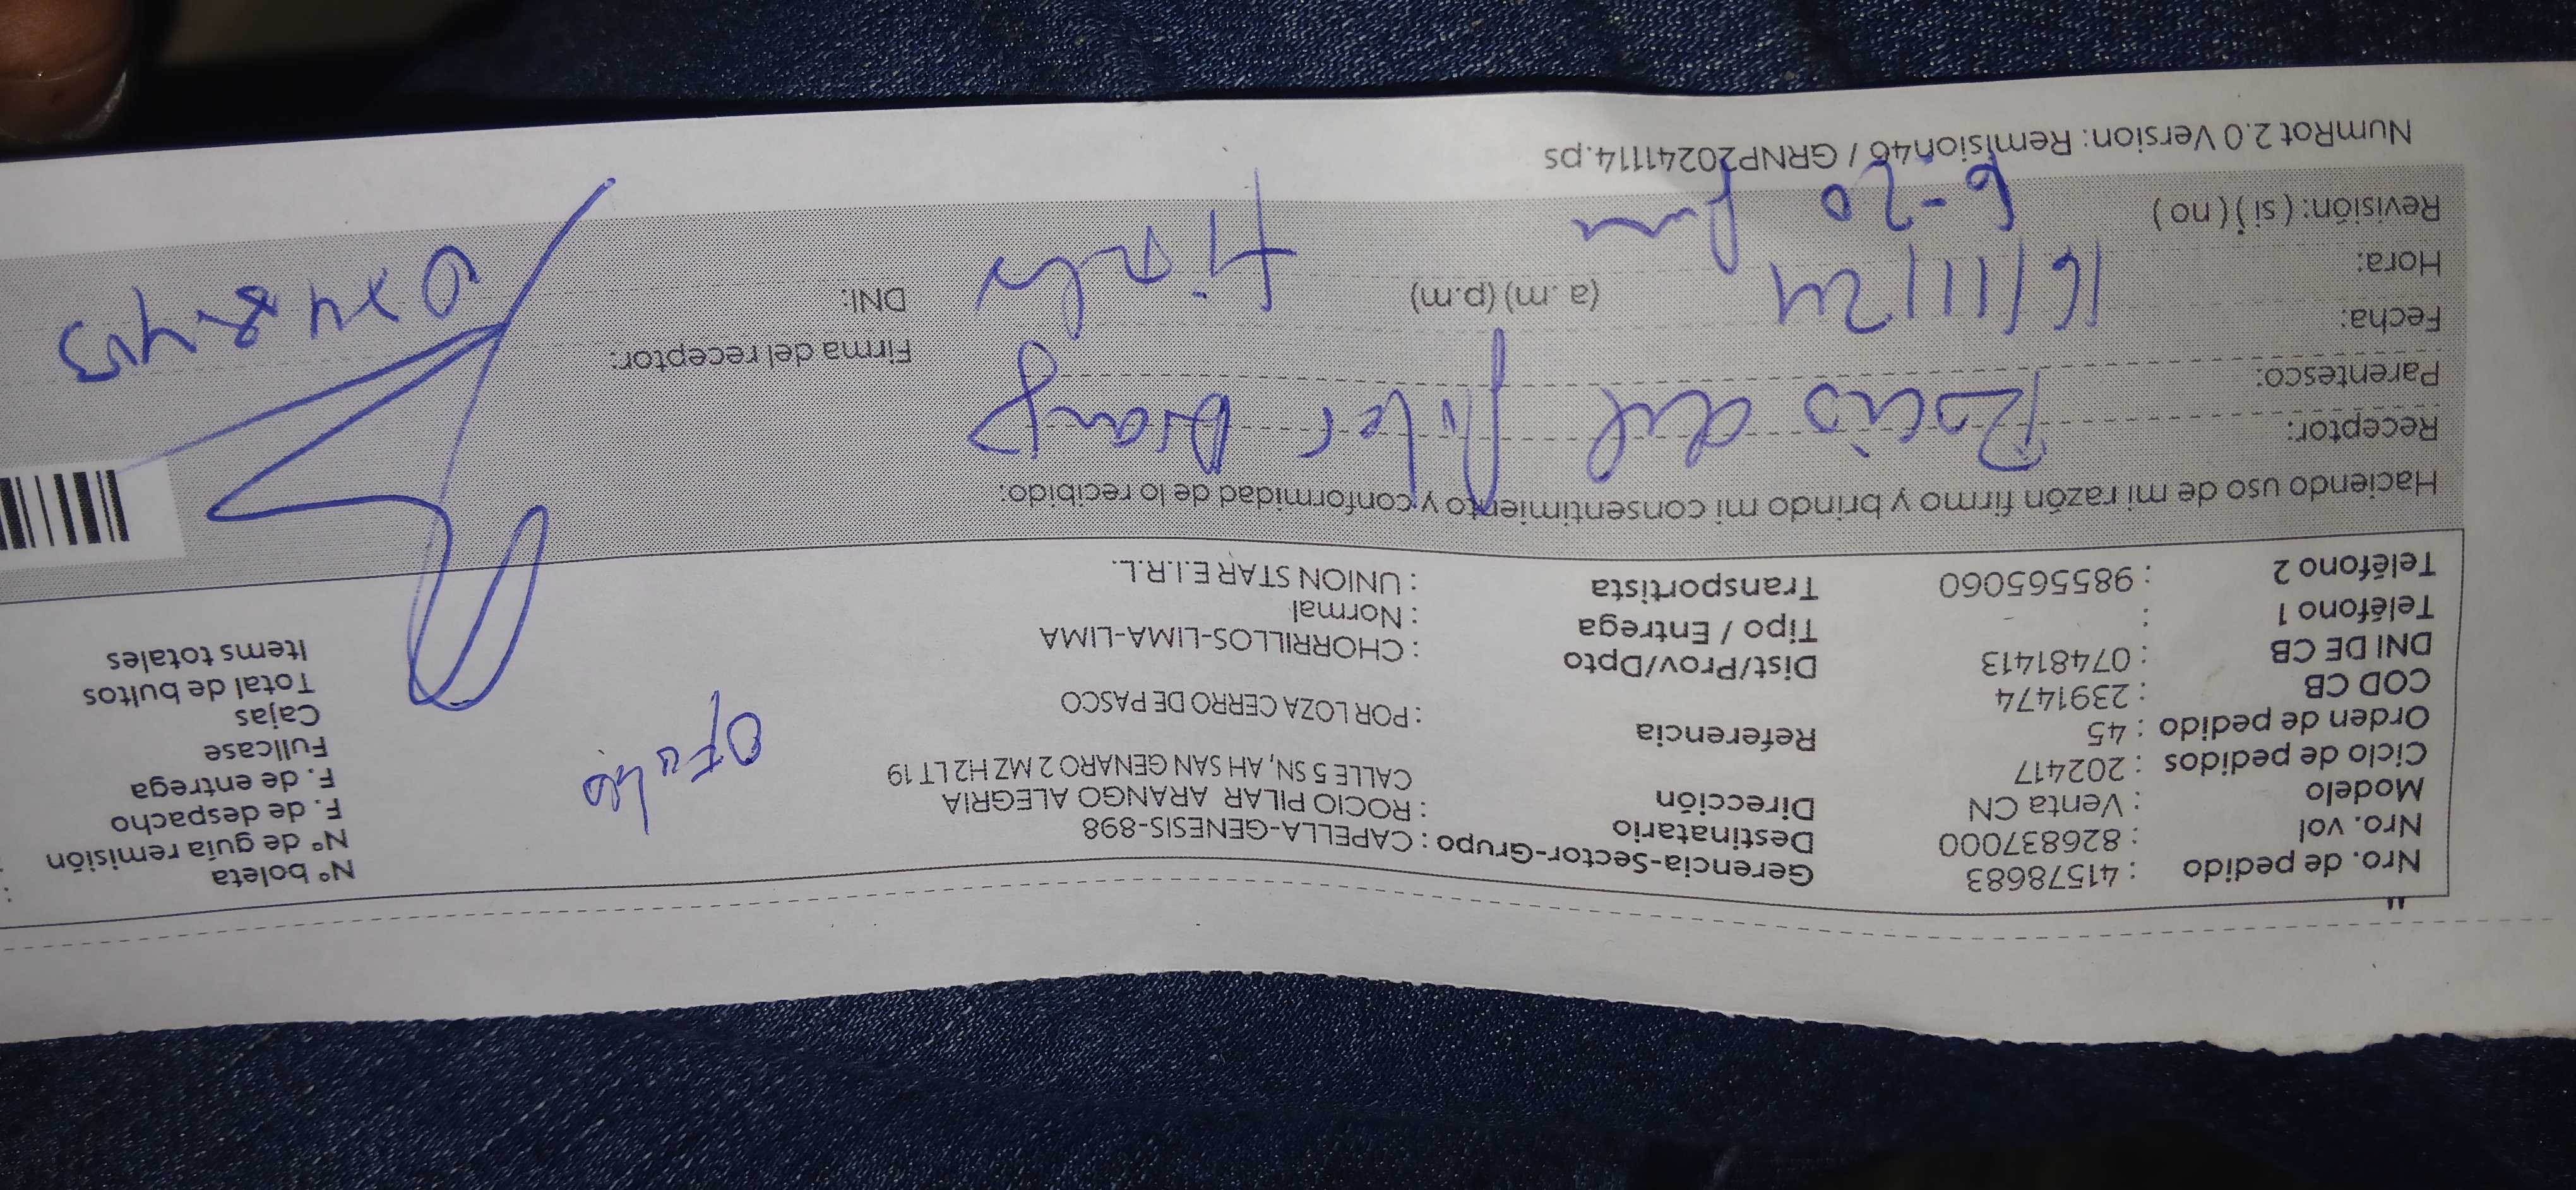 "
Nro. de pedido : 41578683 Gerencia-Sector-Grupo : CAPELLA-GENESIS-898 N° boleta :
Nro. vol : 826837000 Destinatario : ROCIO PILAR ARANGO ALEGRIA N° de guía remisión :
Modelo : Venta CN Dirección CALLE 5 SN, AH SAN GENARO 2 MZ H2 LT 19 F. de despacho
Ciclo de pedidos : 202417 F. de entrega
Orden de pedido : 45 Referencia : POR LOZA CERRO DE PASCO Fullcase
COD CB : 2391474 Cajas
DNI DE CB : 07481413 Dist/Prov/Dpto : CHORRILLOS-LIMA-LIMA Total de bultos
Teléfono 1 : Tipo / Entrega : Normal Items totales
Teléfono 2 : 985565060 Transportista : UNION STAR E.I.R.L.
Haciendo uso de mi razón firmo y brindo mi consentimiento y conformidad de lo recibido:
Receptor: Rocio del Pilar Arang
Parentesco: Firma del receptor:
Fecha: 16/11/24 Titular
Hora: (a. m) (p.m) DNI:
Revisión: ( si ) ( no ) 6-20 pm
NumRot 2.0 Version: Remision46 / GRNP20241114.ps